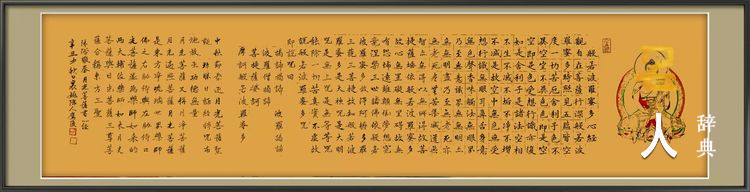 般若波羅蜜多心經
觀自在菩薩行深般若波
羅蜜多時照見五蘊皆空
度一切苦厄舍利子色不
異空空不異色色即是空
空即是色受想行識亦復
如是舍利子是諸法空相
不生不滅不垢不淨不增
不減是故空中無色無受
想行識無眼耳鼻舌身意
無色聲香味觸法無眼界
乃至無意識界無無明亦
無無明盡乃至無老死亦
無老死盡無苦集滅道無
智亦無得以無所得故菩
提薩埵依般若波羅蜜多
故心無罣礙無罣礙故無
有恐怖遠離顛倒夢想究
竟涅槃三世諸佛依般若
波羅蜜多故得阿耨多羅
三藐三菩提故知般若波
羅蜜多是大神咒是大明
咒是無上咒是無等等咒
能除一切苦真實不虛故
說般若波羅蜜多咒
即說咒曰
揭諦揭諦 波羅揭諦
波羅僧揭諦
菩提薩婆訶
摩訶般若波羅蜜多
中秋節恭迎月光菩薩聖
誕
月光遍照菩薩
是東方淨琉璃世界藥師
佛之右脇侍與左脇侍日
光菩薩
兩大輔佐藥師如來月光
菩薩合稱東方三聖
人
辞典